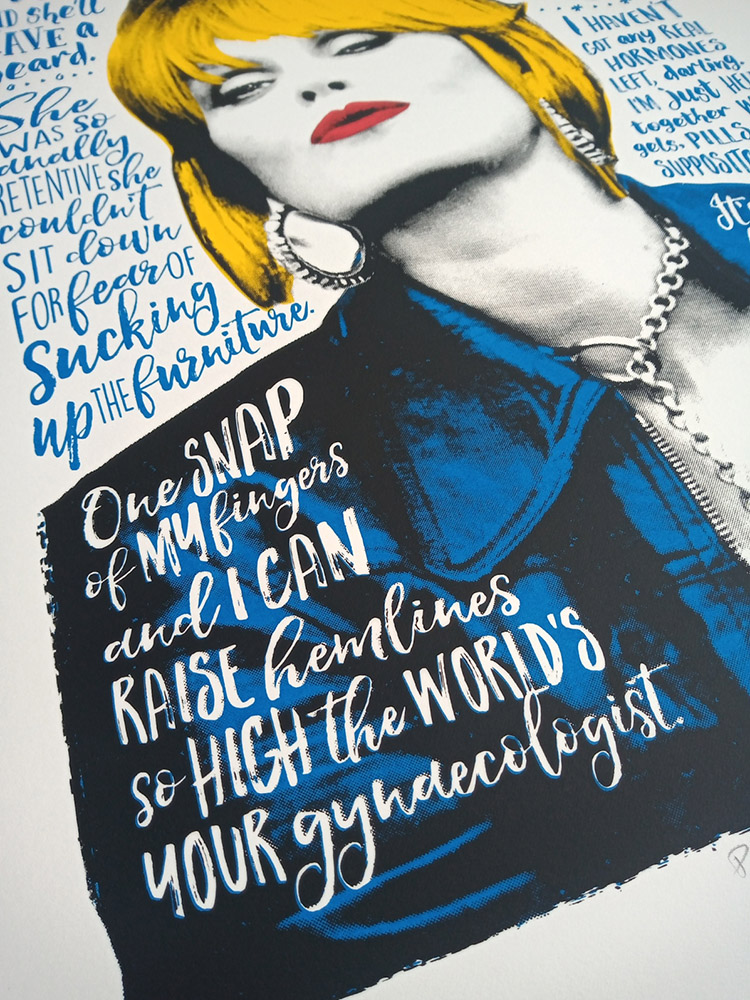 she'll
a
beard.
She
WAS SO
anally
RETENTIVE she
couldn't
SIT down
FOR fear OF
Sucking
up THE furniture.
I HAVEN'T
GOT any REAL
HORMONES
LEFT, darling.
I'M Just
together
gels, PILLS
One SNAP
of MY fingers
and I CAN
RAISE hemlines
so HIGH the WORLD'S
YOUR gynaecologist.